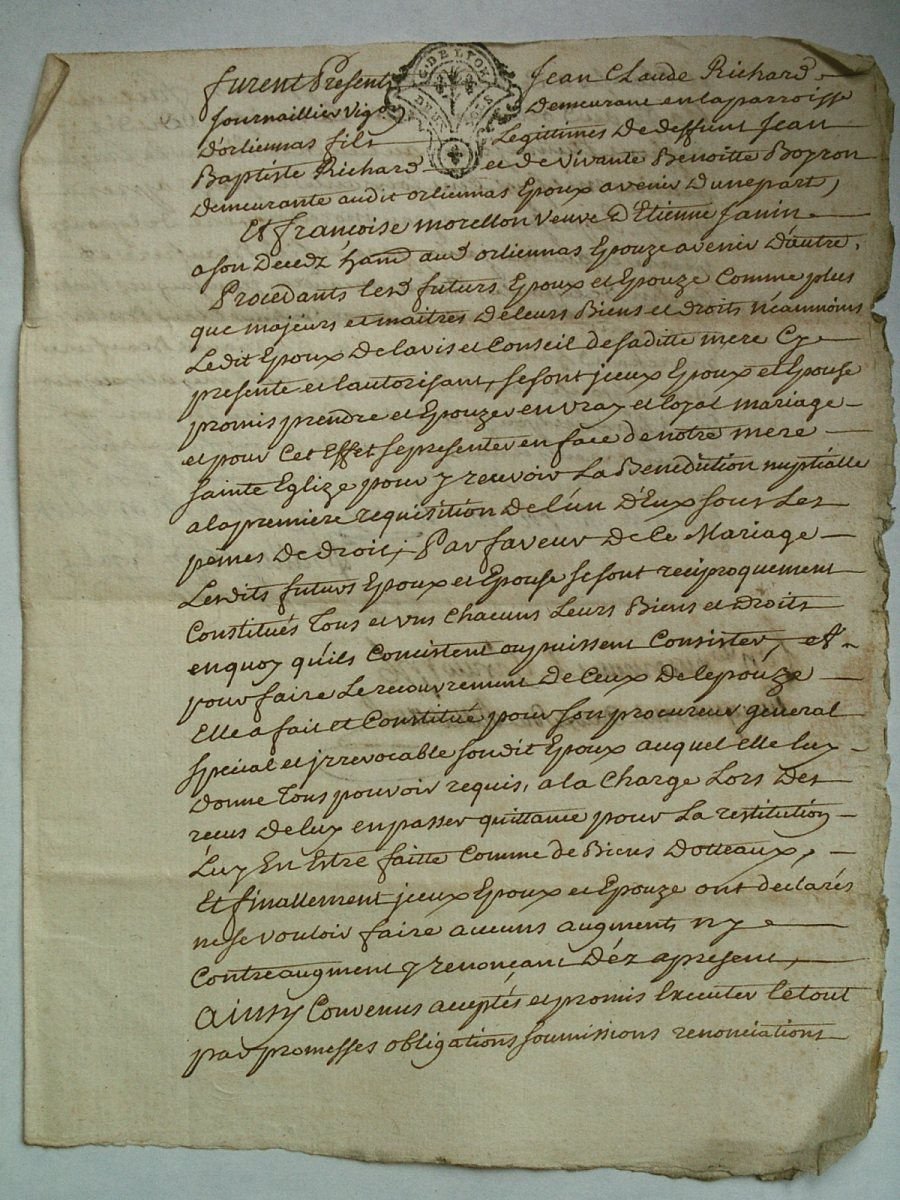 G. DE LYON
DEUX SOLS
furent Presents Jean Claude Richard
Journaillier Vigon Demeurant en laparroisse
D'orliennas fils Legittimes De deffunt Jean
Baptiste Richard et de vivante Benoitte Boyron
Demeurante audit orliennas Epoux avenir D'unepart,
Et françoise morellon veuve D'Etienne Janin
a son Decedz hand. aud. orliennas Epouze avenir D'autre,
Procedants lesd. futurs Epoux et Epouze Comme plus
que majeurs et maitres De leurs Biens et droits néanmoins
Ledit Epoux De lavis et Conseil de saditte mere Cy
presente et l'autorisant, se sont jceux Epoux et Epouse
promis prendre et Epouzer en vray et loyal mariage
et pour Cet Effet se presenter en face de notre mere
sainte Eglize pour y recevoir La Benediction nuptialle
a la premiere requisition de l'un D'Eux sous Les
peines De droit, Par faveur de le Mariage
Lesdits futurs Epoux et Epouse se sont reciproquement
Constitués Tous et uns Chacuns Leurs Biens et Droits
en quoy qu'ils Consistent ou puissent Consister, et
pour faire Le recouvrement De Ceux De lepouze
Elle a fait et Constitué pour son procureur general
special et jrrevocable son dit Epoux auquel elle luy
Donne Tous pouvoir requis, a la Charge Lors Des
recus De luy en passer quittance pour La restitution
Luy En Estre faitte Comme de Biens Dotteaux,
Et finallement jceux Epoux et Epouze ont declarés
ne se vouloir faire aucuns augments ny
Contreaugment y renoncant Déz apresent,
ainsy Convenus acceptés et promis Executer le tout
par promesses obligations soumissions renonciations